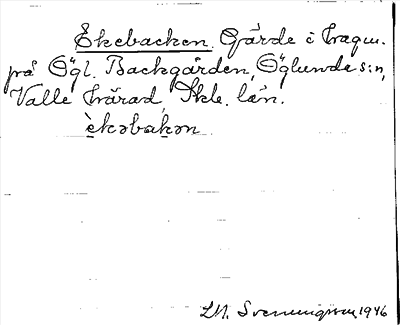 Ekebacken. Gärde i Fragm.
på Ögl. Backgården, Öglunda s:n,
Valle härad, Skbl. län.
èkəbakən
L.M. Svenningsson 1946